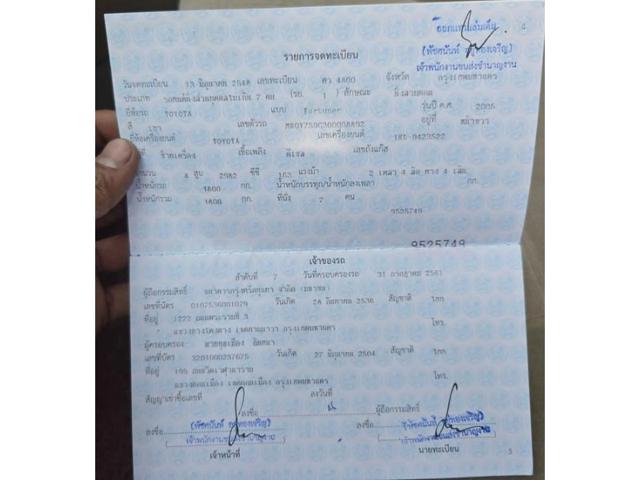 ออกแทนเล่มเต็ม
4
รายการจดทะเบียน
(พัชตนันท์ ทองเจริญ)
เจ้าพนักงานขนส่งชำนาญงาน
วันจดทะเบียน 13 มิถุนายน 2548 เลขทะเบียน 4800 จังหวัด กรุงเทพมหานคร
ประเภท รถยนต์นั่งส่วนบุคคลไม่เกิน 7 คน (รย. 1) ลักษณะ
ยี่ห้อรถ TOYOTA แบบ Fortuner รุ่นปี ค.ศ. 2005
สี เทา เลขตัวรถ อยู่ที่
ยี่ห้อเครื่องยนต์ TOYOTA เลขเครื่องยนต์ 1KD-9423522
ซ้ายเครื่อง เชื้อเพลิง ดีเซล เลขถังแก๊ส
จำนวน 4 สูบ 2982 ซีซี 163 แรงม้า 2 เพลา 4 ล้อ ยาง 4 เส้น
น้ำหนักรถ 1800 กก. น้ำหนักบรรทุก/น้ำหนักลงเพลา กก.
น้ำหนักรวม 1800 กก. ที่นั่ง 7 คน
9525749
9525749
เจ้าของรถ
ลำดับที่ 7 วันที่ครอบครองรถ 31 กรกฎาคม 2561
ผู้ถือกรรมสิทธิ์ ธนาคารกรุงศรีอยุธยา จำกัด (มหาชน)
เลขที่บัตร 0107536001079 วันเกิด 2536 สัญชาติ ไทย
ที่อยู่ 1222 ถนนพระรามที่ 3
แขวงบางโพงพาง เขตยานนาวา กรุงเทพมหานคร โทร.
ผู้ครอบครอง
เลขที่บัตร 3201000237675 วันเกิด 27 มิถุนายน 2504 สัญชาติ ไทย
ที่อยู่
แขวงดอนเมือง เขตดอนเมือง กรุงเทพมหานคร โทร.
สัญญาเช่าซื้อเลขที่ ลงวันที่
ลงชื่อ ผู้ถือกรรมสิทธิ์
(พัชตนันท์ ทองเจริญ) (พัชตนันท์ ทองเจริญ)
ลงชื่อ เจ้าพนักงานขนส่งชำนาญงาน ลงชื่อ เจ้าพนักงานขนส่งชำนาญงาน
เจ้าหน้าที่ นายทะเบียน
5